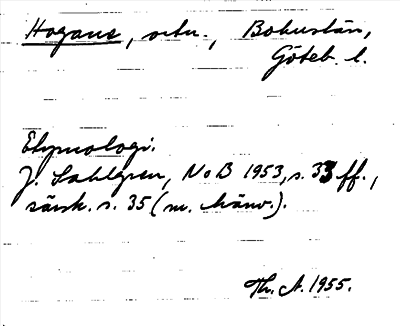 Hogans, ortn., Bohuslän,
Göteb. l.
Etymologi.
J. Sahlgren, NoB 1953, s. 33 ff.,
särsk. s. 35 (m. hänv.).
Th. A. 1955.